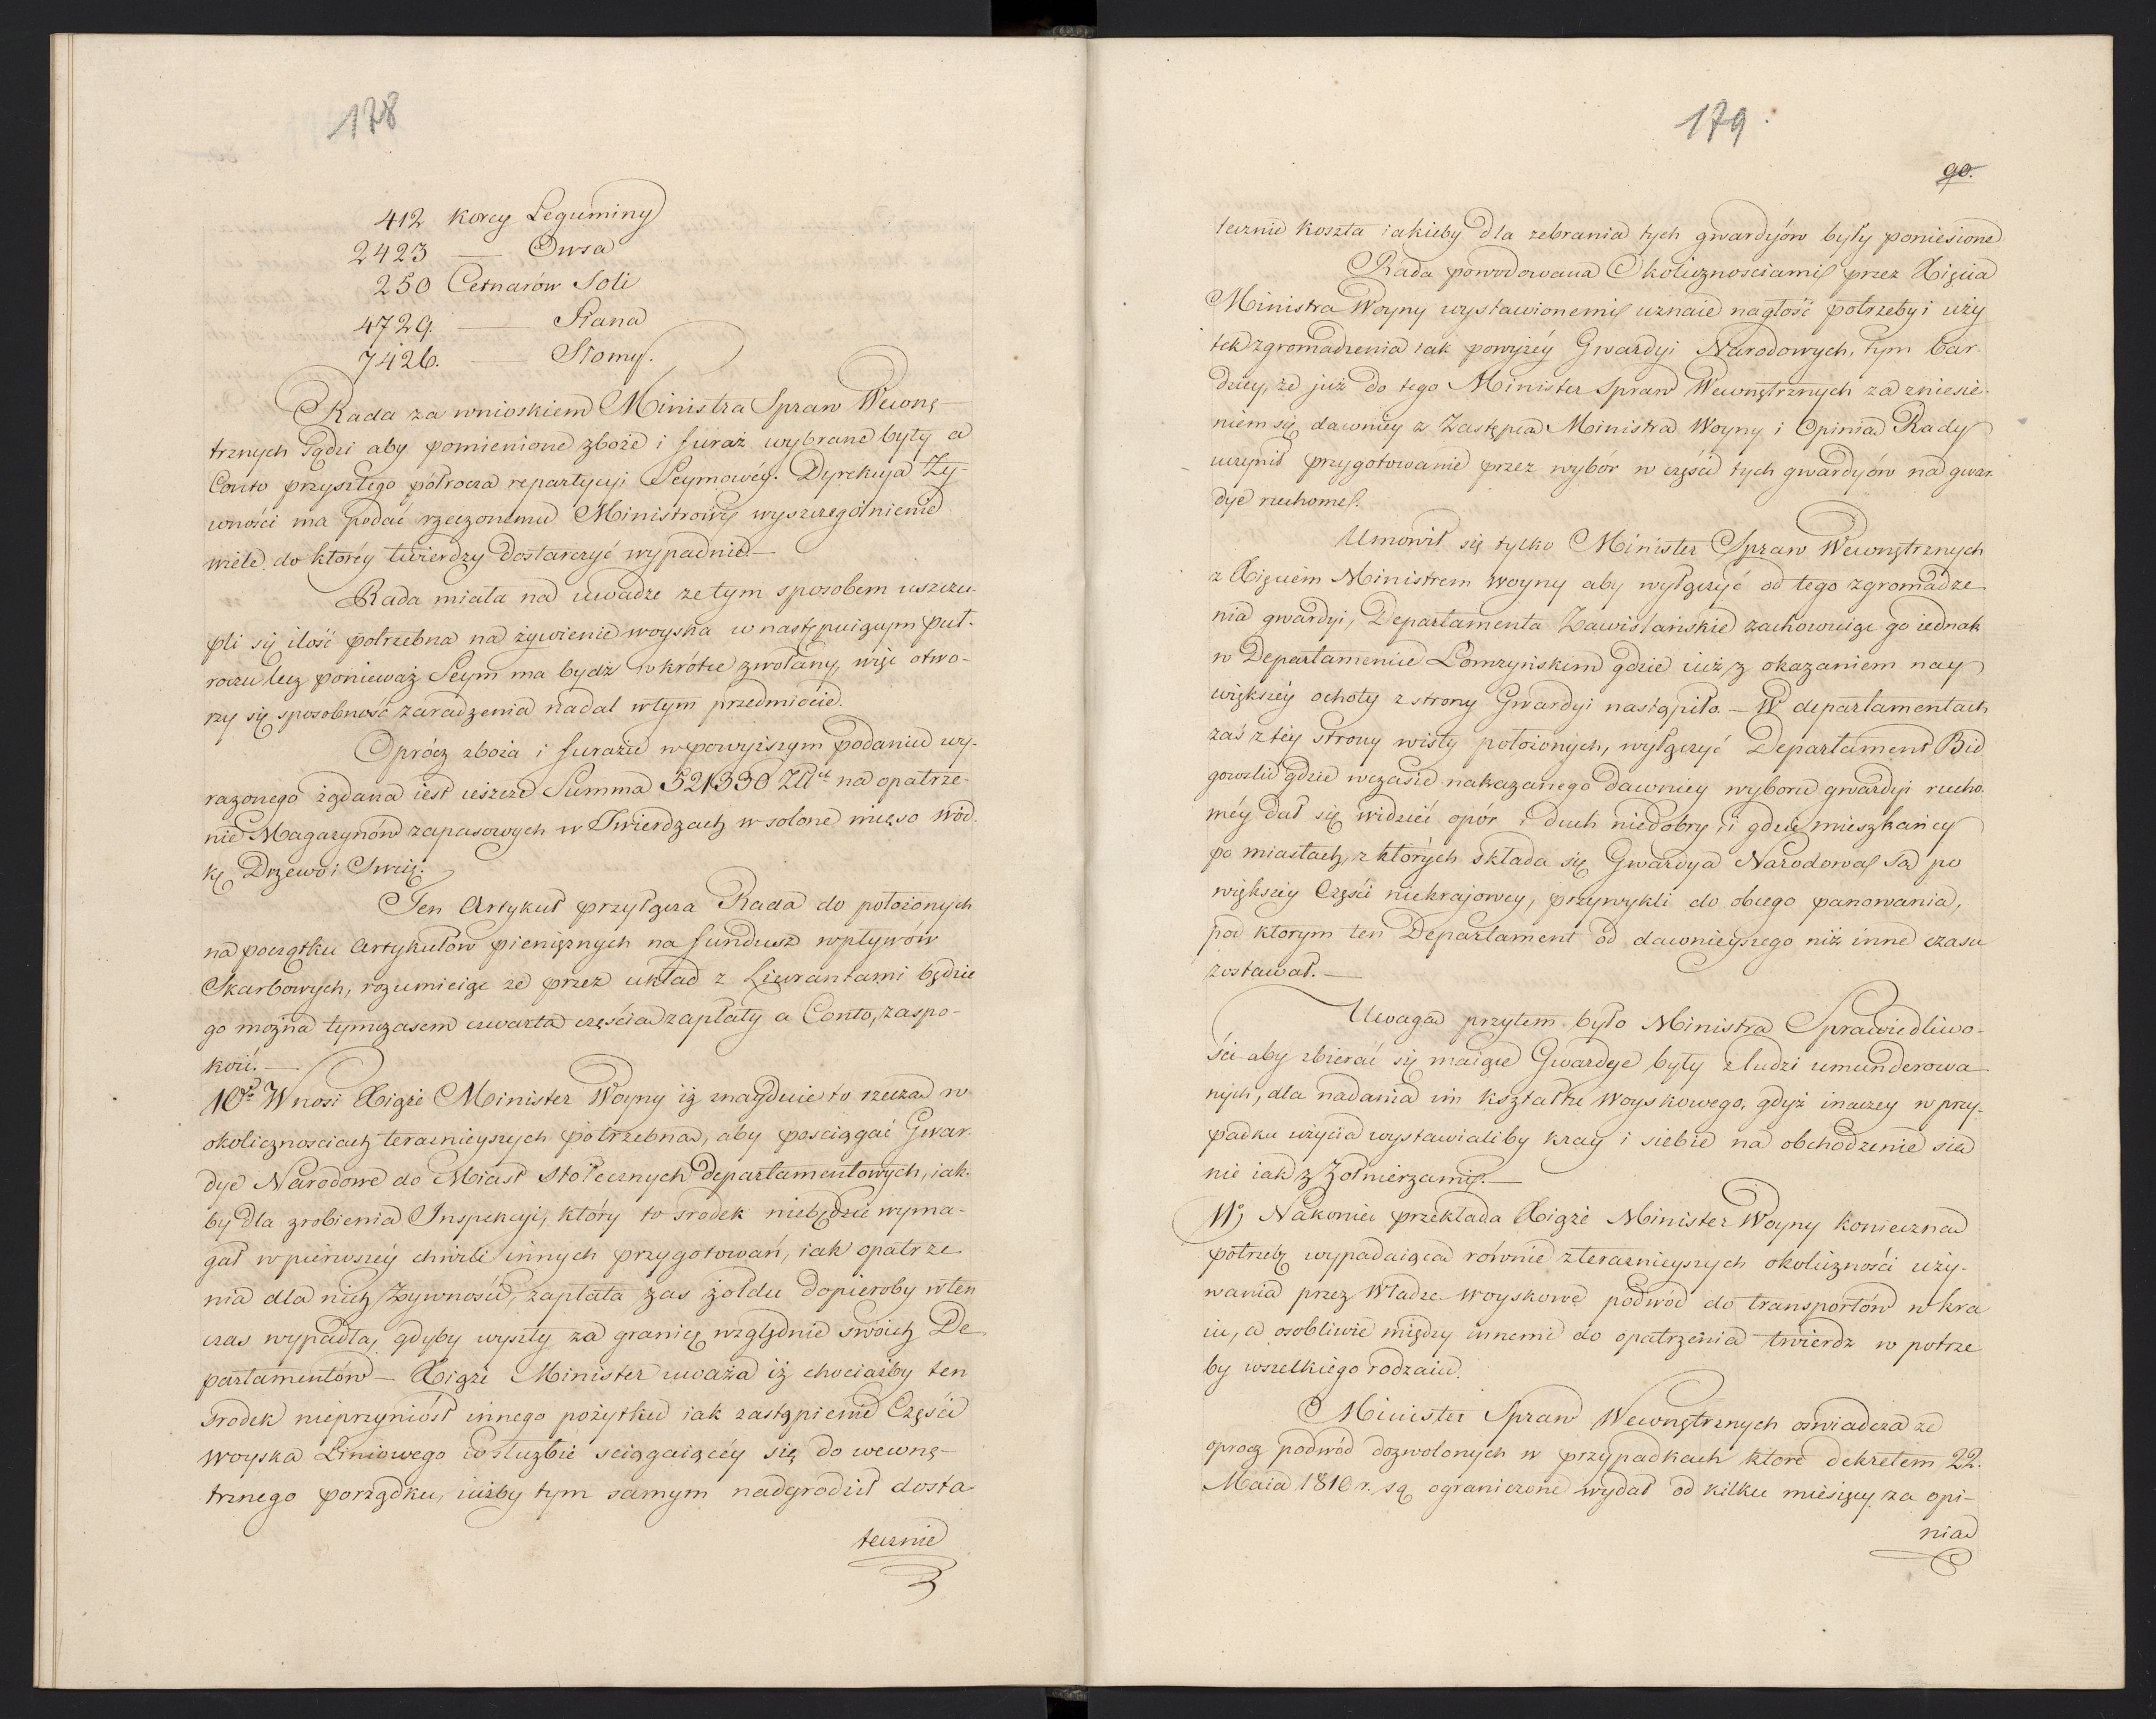 178
412 korcy Leguminy
2423 — Owsa
250 Cetnarów Soli
4729. — Siana
7426. — Słomy.
Rada za wnioskiem Ministra Spraw Wewnę-
trznych sądzi aby pomienione zboże i furaż wybrane były a
Conto przyszłego półrocza repartycyi Seymowéy. Dyrekcya Ży-
wności ma podać rzeczonemu Ministrowi wyszczególnienie
wiele do którey twierdzy dostarczyć wypadnie.—
Rada miała na uwadze że tym sposobem uszczu-
pli się ilość potrzebna na żywienie woyska w następuiącym puł-
roczu lecz ponieważ Seym ma bydź wkrótce zwołany, więc otwo-
rzy się sposobność zaradzenia nadal wtym przedmiocie.
Oprócz zboża i furażu w powyższym podaniu wy-
rażonego żądana iest ieszcze Summa 521330 Złł na opatrze-
nie Magazynów zapasowych w Twierdzach w solone mięso wód-
kę Drzewo i Świć.
Ten Artykuł przyłącza Rada do położonych
na początku Artykułów pieniężnych na fundusz wpływów
Skarbowych, rozumieiąc że przez układ z Liwrantami będzie
go można tymczasem czwartą częścią zapłaty a Conto, zaspo-
koić.—
10º Wnosi Xiąże Minister Woyny iż znayduie to rzeczą w
okolicznościach teraznieyszych potrzebną, aby pościągać Gwar-
dye Narodowe do Miast Stołecznych Departamentowych, iak-
by dla zrobienia Inspekcyi, który to srodek niebędzie wyma-
gał w pierwszéy chwili innych przygotowań, iak opatrze
nia dla nich Żywności, zapłata zas żołdu dopieroby wten
czas wypadła, gdyby wyszły za granicę względnie swoich De
partamentów — Xiąże Minister uważa iż chociażby ten
srodek nieprzyniósł innego pożytku iak zastąpienie Części
woyska Liniowego w służbie sciągaiącéy się do wewnę-
trznego porządku, iużby tym samym nadgrodził dosta
tecznie
179.
90.
tecznie koszta iakieby dla zebrania tych gwardyów były poniesione
Rada powodowana Okolicznosciami przez Xięcia
Ministra Woyny wystawionemi uznaie nagłość potrzeby i uży
tek zgromadzenia iak powyżéy Gwardyi Narodowych, tym bar-
dziey, że już do tego Minister Spraw Wewnętrznych za zniesie-
niem się dawniéy z Zastępcą Ministra Woyny i Opinią Rady
uczynił przygotowanie przez wybór w części tych gwardyów na gwar
dye ruchome.
Umowił się tylko Minister Spraw Wewnętrznych
z Xięciem Ministrem woyny aby wyłączyć od tego zgromadze
nia gwardyi, Departamenta Zawiślańskie zachowuiąc go iednak
w Departamencie Łomżyńskim gdzie iuż z okazaniem nay
większéy ochoty z strony Gwardyi nastąpiło. — W departamentach
zaś z téy strony wisły położonych, wyłączyć Departament Bid
gowski gdzie wczasie nakazanego dawniey wyboru gwardyi rucho
méy dał się widzieć opór i duch niedobry, i gdzie mieszkańcy
po miastach, z których składa się Gwardya Narodowa, są po
większéy Części niekrajowcy, przywykli do obcego panowania,
pod którym ten Departament od dawnieyszego niż inne czasu
zostawał.—
Uwagą przytem było Ministra Sprawiedliwo-
ści aby zbierać się maiące Gwardye były z ludzi umunderowa
nych, dla nadania im kształtu Woyskowego, gdyż inaczey w przy-
padku użycia wystawialiby kray i siebie na obchodzenie się
nie iak z Żołnierzami.—
11º, Nakoniec przekłada Xiąże Minister Woyny konieczną
potrzebę wypadaiącą równie z teraznieyszych okoliczności uży-
wania przez Władze woyskowe podwód do transportów w kra
iu, a osobliwie między innemi do opatrzenia twierdz w potrze
by wszelkiego rodzaiu.
Minister Spraw Wewnętrznych oswiadcza że
oprocz podwód dozwolonych w przypadkach które dekretem 22.
Maia 1810 r. są ograniczone wydał od kilku miesięcy za opi-
nią